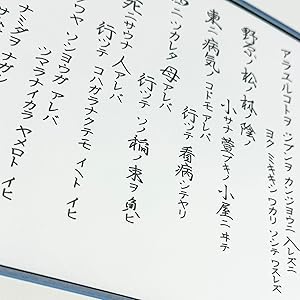 アラユルコトヲ ジブンヲ カンジョウニ入レズニ
ヨク ミキキシ ワカリ ソシテ ワスレズ
野原ノ 松ノ 林ノ 陰ノ
小サナ 萱ブキノ 小屋ニ ヰテ
東ニ 病気ノ コドモ アレバ
行ツテ 看病 シテヤリ
ニ ツカレタ 母 アレバ
行ツテ ソノ 稲ノ 束ヲ 負ヒ
死ニサウナ 人 アレバ
行ツテ コハガラナクテモ イヽト イヒ
ワヤ ソシヨウガ アレバ
ツマラナイカラ ヤメロト イヒ
ナミダヲ ナガシ